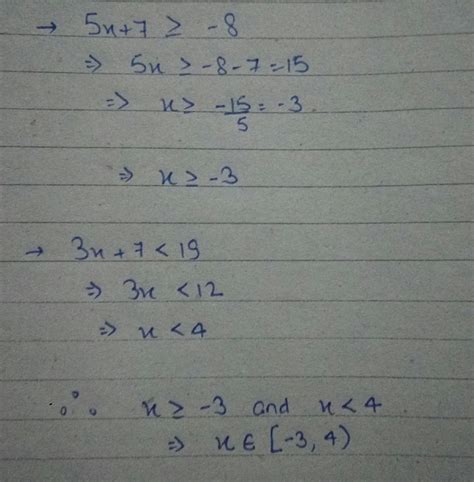 → 5x+7 ≥ -8
⇒ 5x ≥ -8-7=15
⇒ x ≥ -15/5 = -3
⇒ x ≥ -3
→ 3x+7 < 19
⇒ 3x < 12
⇒ x < 4
∴ x ≥ -3 and x < 4
⇒ x ∈ [-3, 4)